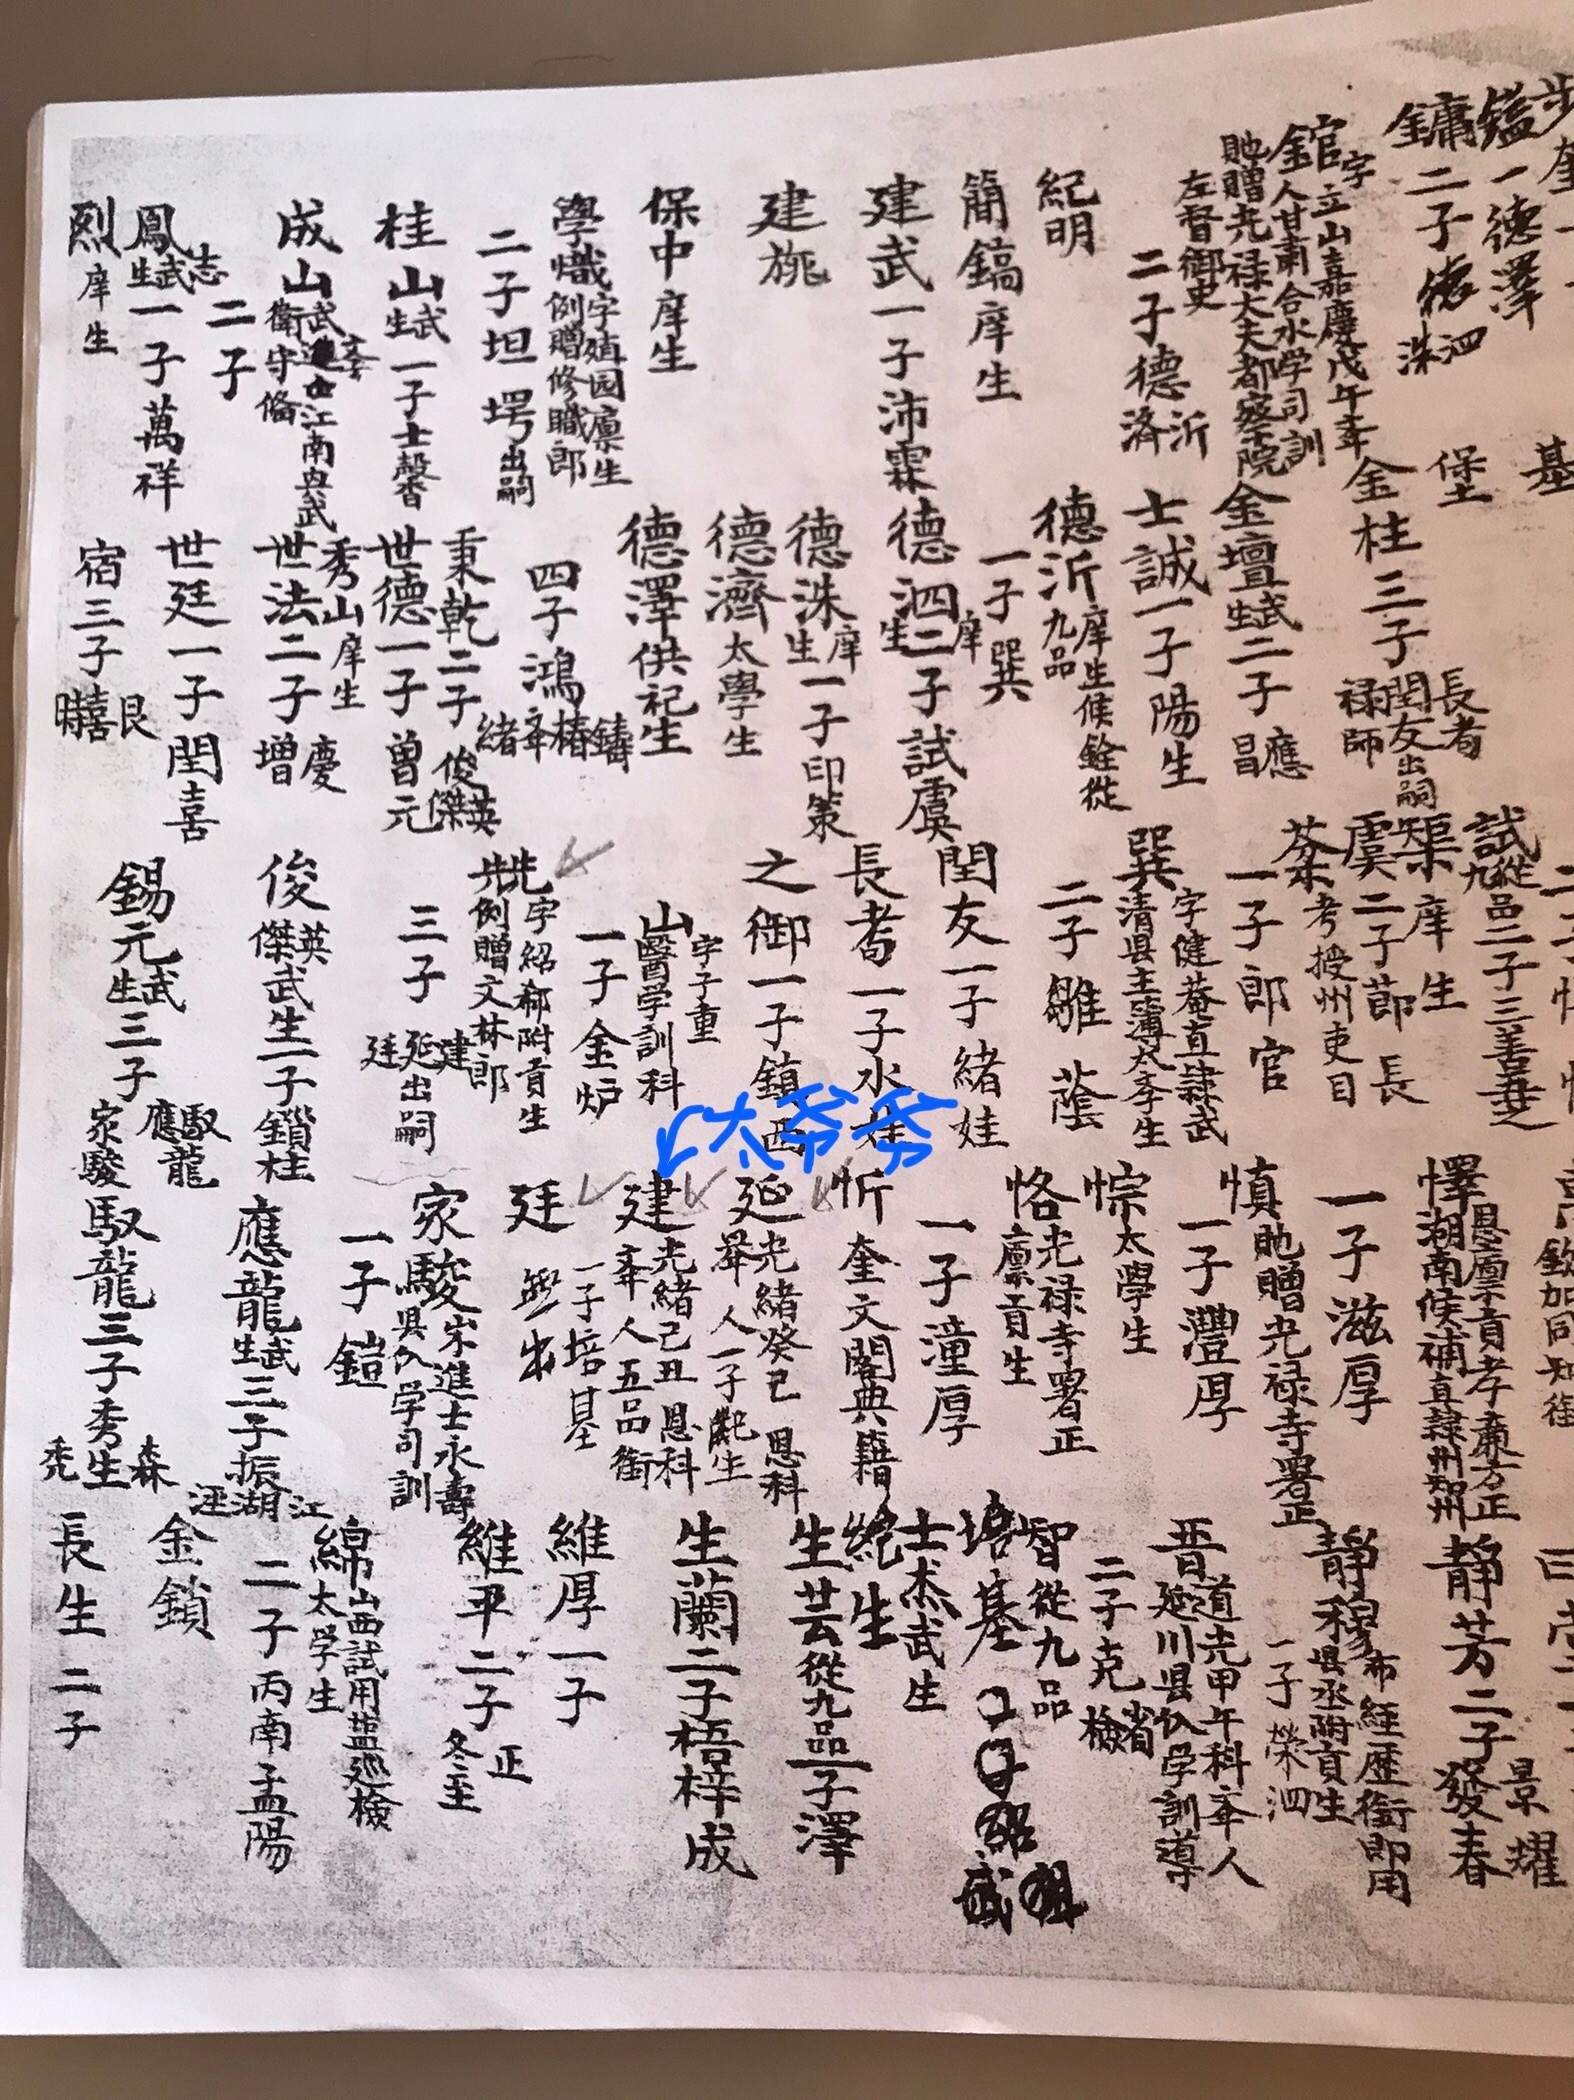 步
鎰一德澤
鏞二子德
泗
洙
錧
字立山嘉慶戊午舉
人甘肅合水学司訓
貤贈光禄大夫都察院
左督御史
二子德
沂
濟
紀明
簡鎬庠生
建武一子沛霖
建旐
保中庠生
學幟
字殖园廪生
例贈修職郎
二子坦
堮出嗣
桂山武生一子士馨
成山
衛守俻
二子
志
鳳武生一子萬祥
烈庠生
基
堡
金柱三子
長耇
閏友出嗣
禄師
金壇武生二子
應
昌
士誠一子陽生
德沂
庠生候銓從
九品
一子巽
德泗庠生二子試虞
德洙庠生一子印策
德濟太學生
德澤供祀生
四子鴻
鑄
椿
緒
秉乾二子
英
俊
傑
世德一子曾元
秀山庠生
世法二子
慶
增
世廷一子閏喜
宿三子
艮
喜
試從九邑二子三善
渠庠生
虞二子節
長
棻考授州吏目
一子郎官
巽
字健菴直隷武
清县主簿太学生
二子雒
蔭
閏友一子緒娃
長耇一子水娃
之御一子鎮西
山
字子重
醫学訓科
一子金炉
先
字紹郲附貢生
例贈文林郎
三子
建
延出嗣
廷
英
俊傑武生一子鎖柱
錫元武生三子
馭龍
應龍
家駿
欽加同知銜
懌
恩廪貢孝廉方正
湖南候補直隷州知州
一子滋厚
慎
貤贈光禄寺署正
一子豐厚
悰太学生
恪
光禄寺署正
廪貢生
一子潼厚
忻奎文閣典籍
太爷爷
延
光緒癸巳恩科
舉人一子紀生
建
光緒己丑恩科
舉人五品銜
一子培基
廷
無出
家駿
宋進士永壽
县仪学司訓
一子鎧
應龍武生三子振
江
湖
汪
馭龍三子秀生
森
秃
靜芳二子
景耀
發春
靜穆
布經歷銜即用
县丞附貢生
一子榮泗
晋
道光甲午科舉人
延川县仪学訓導
二子克
省
檢
智從九品
培基
士杰武生
紀生
生芸從九品一子澤
生蘭二子梧
梓成
維厚一子
維平二子
正
冬至
綿
山西試用盐巡檢
太学生
二子丙南
孟陽
金鎖
長生二子